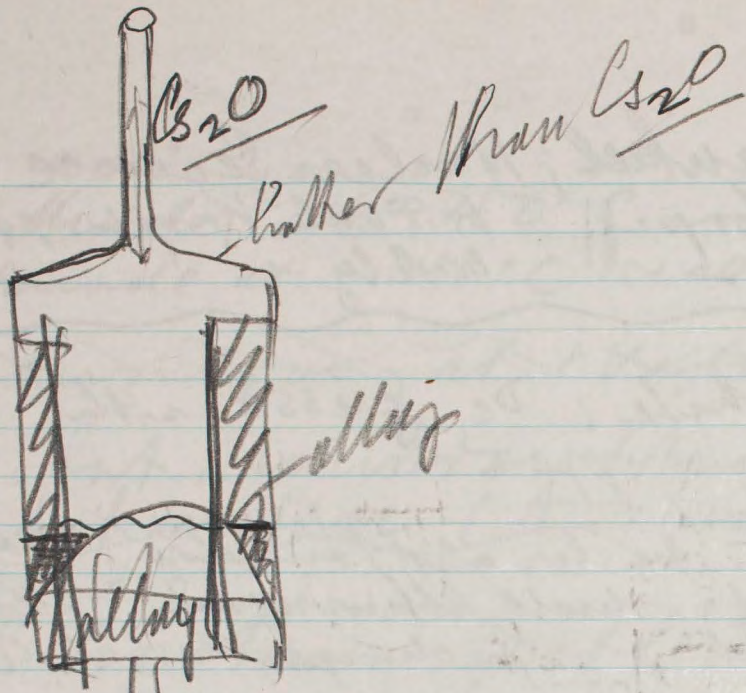 Cs₂O
Rather than Cs₂O
alloy
alloy